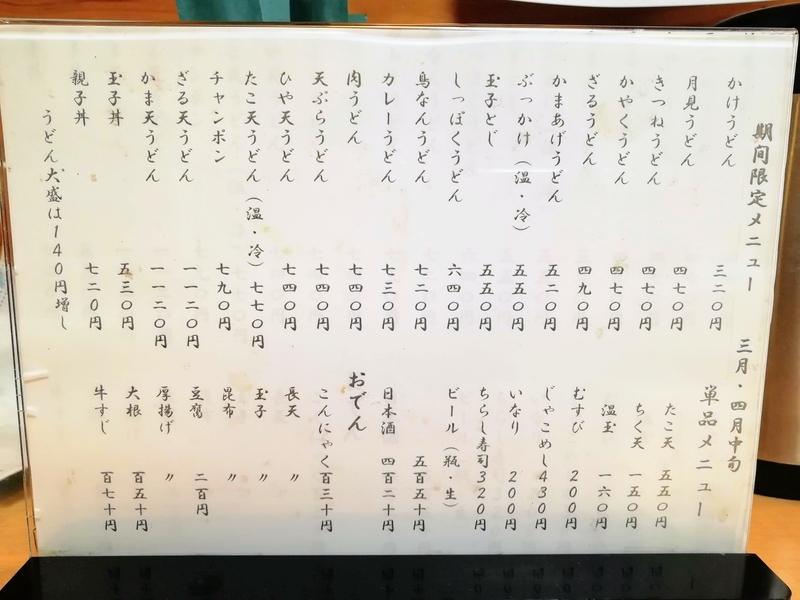 期間限定メニュー 三月・四月中旬
かけうどん 三二〇円
月見うどん 四七〇円
きつねうどん 四七〇円
かやくうどん 四七〇円
ざるうどん 四九〇円
かまあげうどん 五二〇円
ぶっかけ(温・冷) 五五〇円
玉子とじ 五五〇円
しっぽくうどん 六四〇円
鳥なんうどん 七二〇円
カレーうどん 七三〇円
肉うどん 七四〇円
天ぷらうどん 七四〇円
ひや天うどん 七四〇円
たこ天うどん(温・冷) 七七〇円
チャンポン 七九〇円
ざる天うどん 一一二〇円
かま天うどん 一一二〇円
玉子丼 五三〇円
親子丼 七二〇円
うどん大盛は140円増し
単品メニュー
たこ天 五五〇円
ちく天 一五〇円
温玉 一六〇円
むすび 200円
じゃこめし 430円
いなり 200円
ちらし寿司 320円
ビール(瓶・生) 五百五十円
日本酒 四百二十円
おでん
こんにゃく 百三十円
長天 〃
玉子 〃
昆布 〃
豆腐 二百円
厚揚げ 〃
大根 百五十円
牛すじ 百七十円